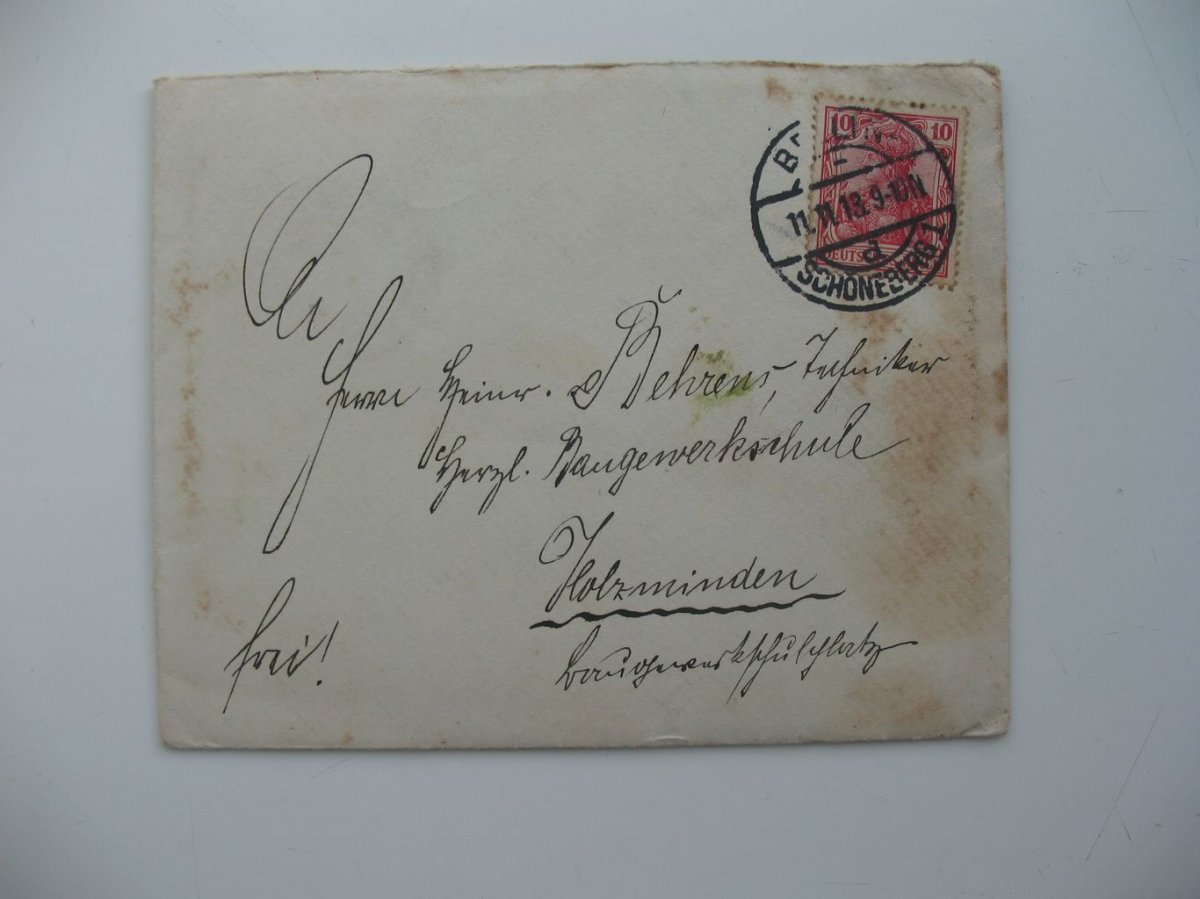 10 10
BERLIN-
11.11.13.9-10N
d
DEUTSCHES
SCHÖNEBERG 1
An
Herrn Heinr. Behrens, Techniker
Herzl. Baugewerkschule
Holzminden
Baugewerkschulplatz
frei!